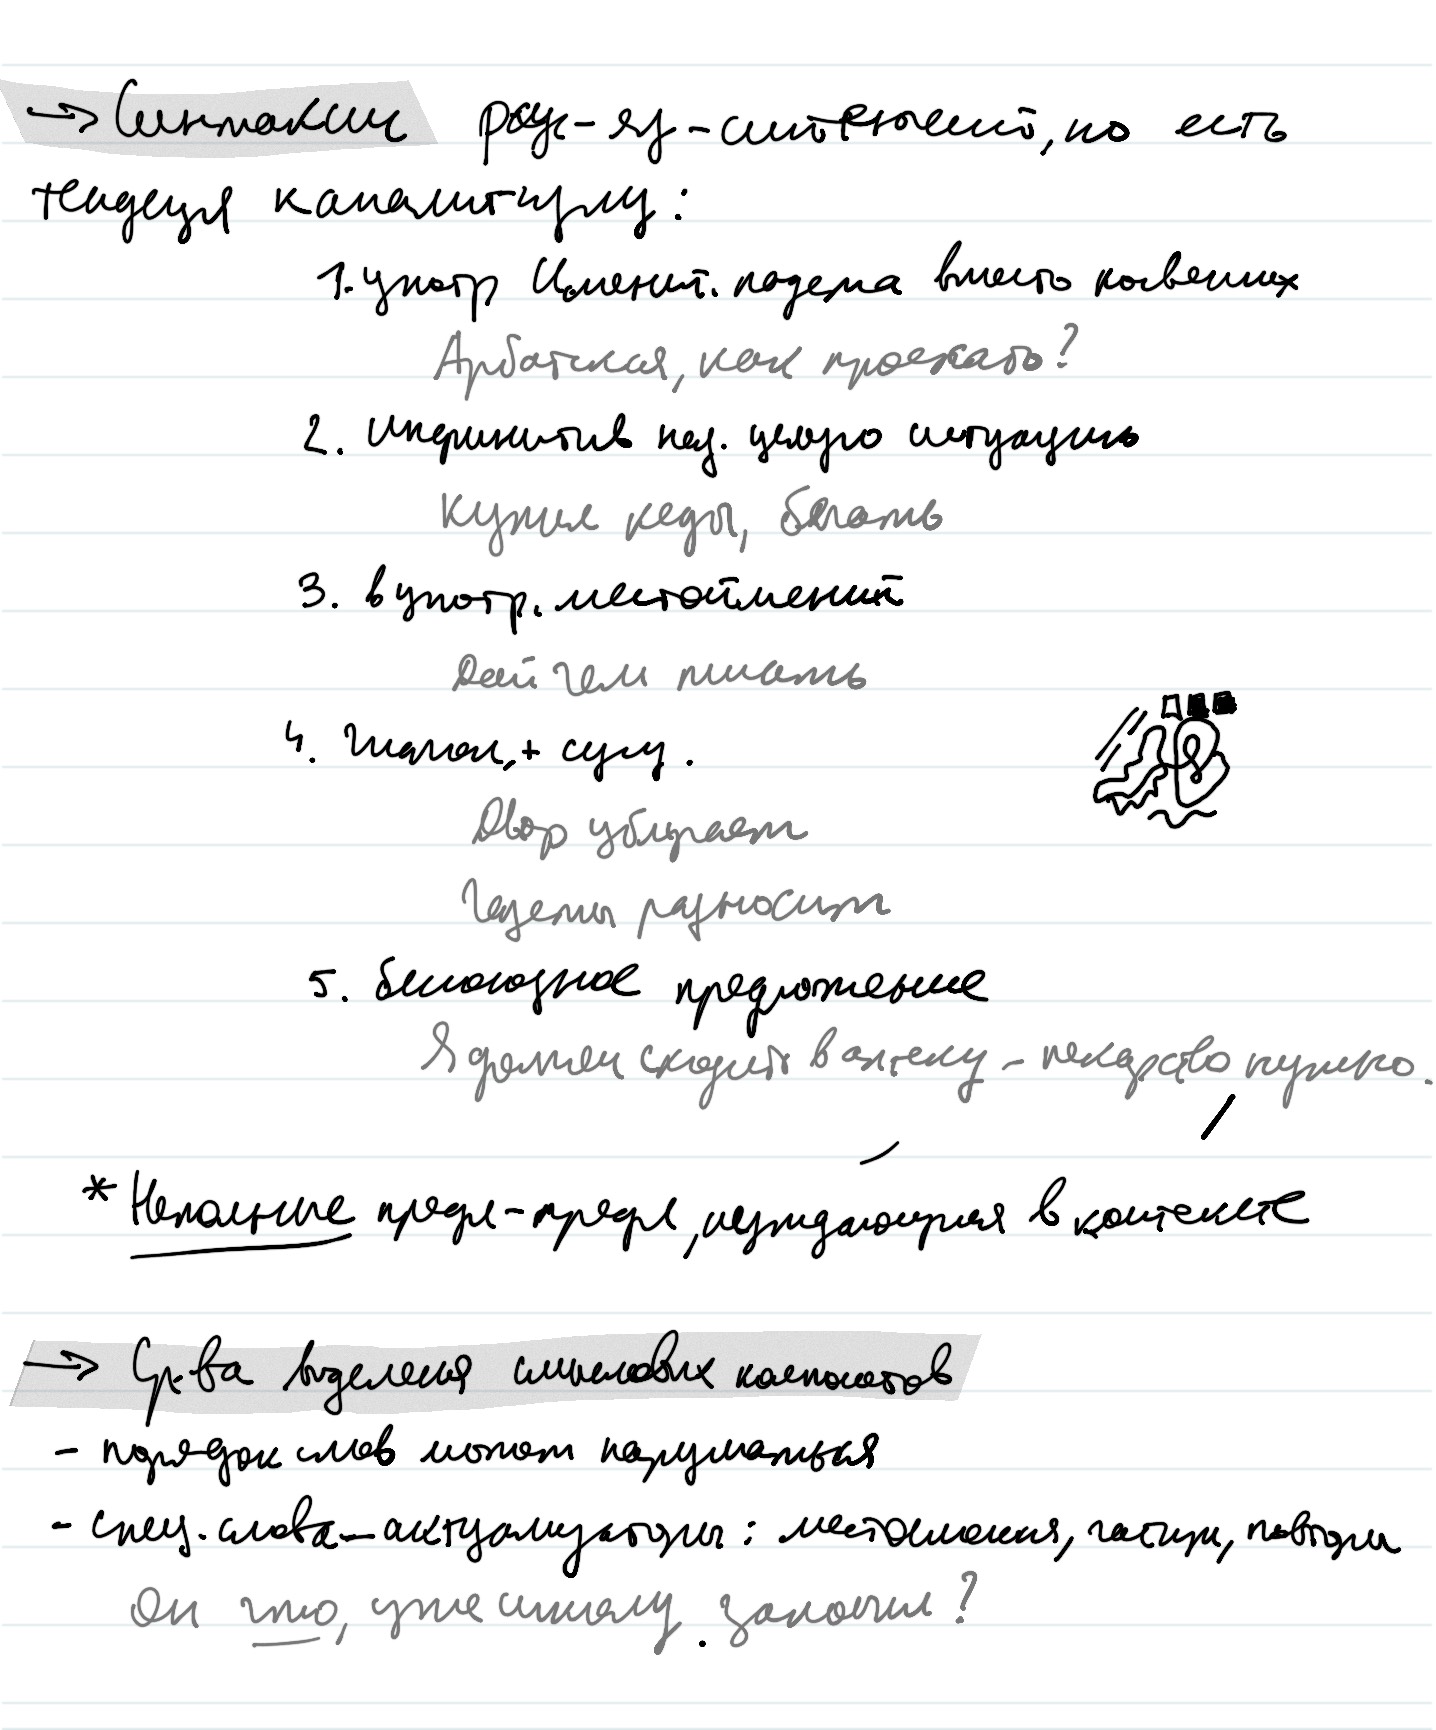 → Синтаксис рус-яз-синтетический, но есть
тенденция к аналитизму:
1. употр Именит. падежа вместо косвенных
Арбатская, как проехать?
2. Инфинитив наз. целую ситуацию
Купил кеды, бегать
3. в употр. местоимений
Дай чем писать
4. Глагол, + сущ.
Двор убирает
Газеты разносит
5. бессоюзное предложение
Я должен сходить в аптеку - лекарство нужно.
* Неполные предл - предл, нуждающиеся в контексте
→ Ср-ва выделения смысловых компонентов
- порядок слов может нарушаться
- спец. слова - актуализаторы: местоимения, частицы, повторы
Он что, уже школу закончил?